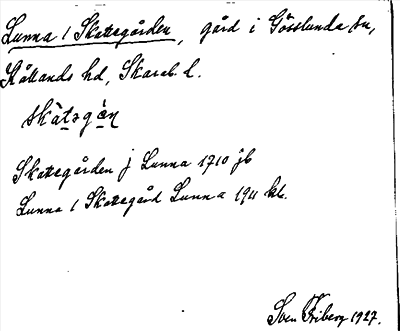 Lunna 1 Skattegården, gård i Gösslunda sn,
Kållands hd, Skarab. l.
skàtsgá̀n
Skattegården i Lunna 1710 jb
Lunna 1 Skattegård Lunna 1911 kb.
Sven Friberg 1927.